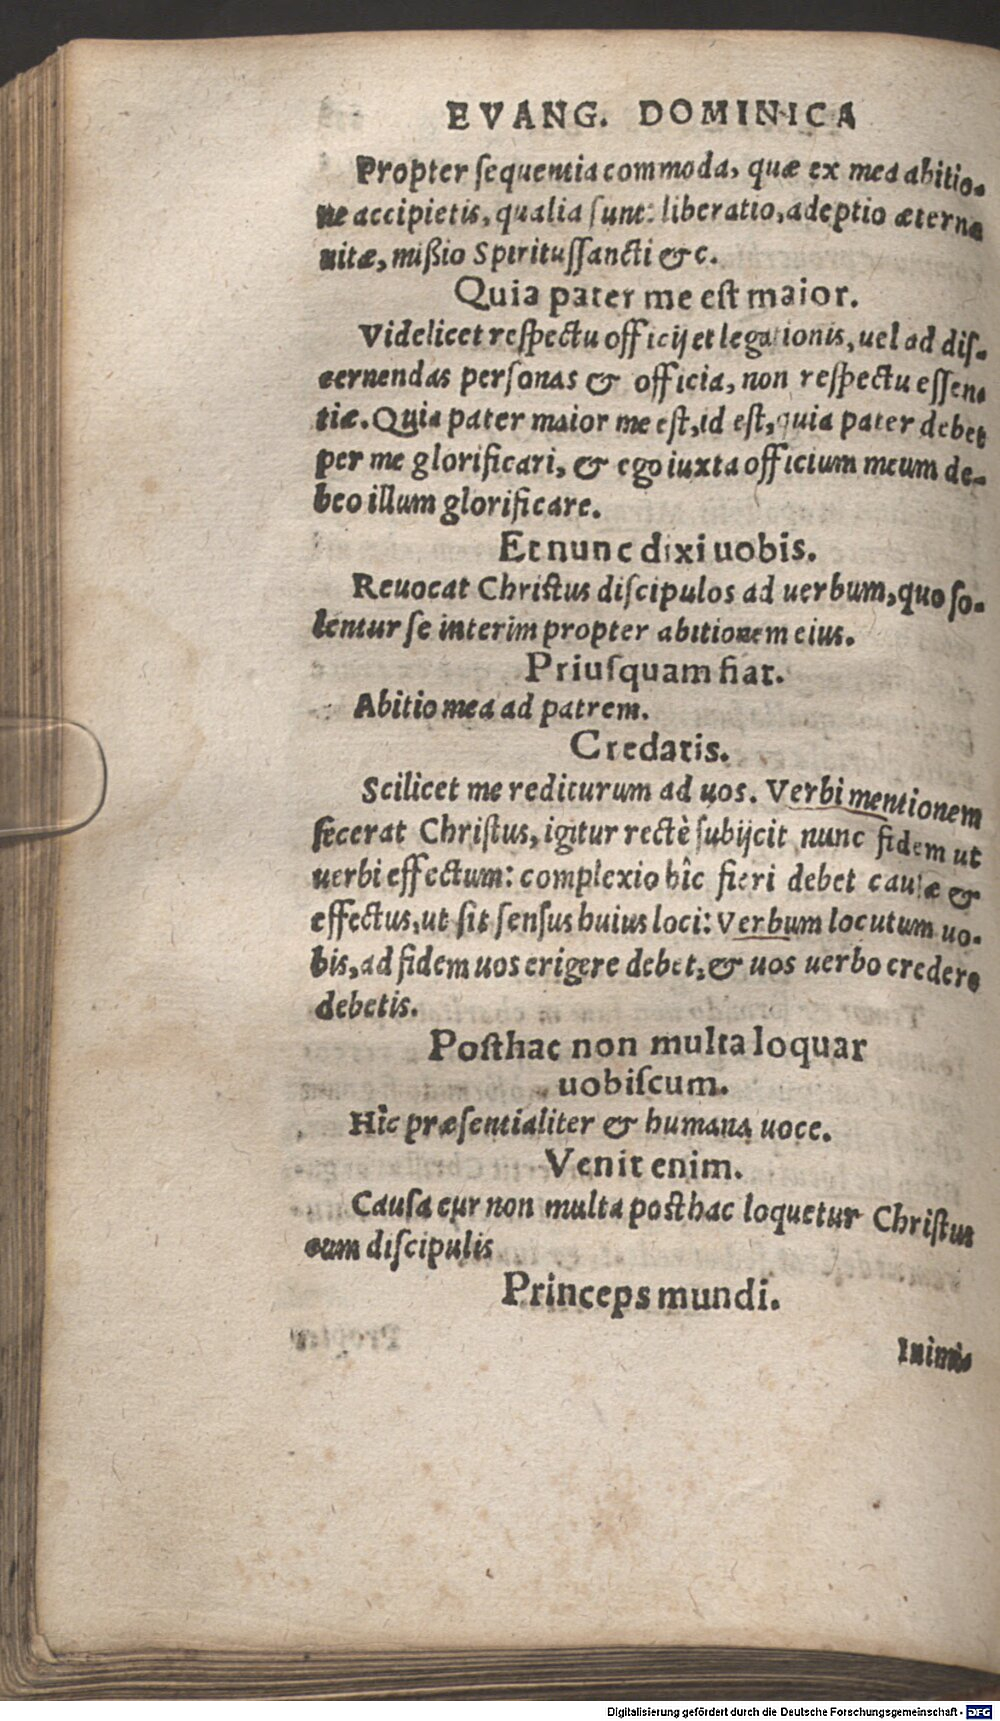 EVANG. DOMINICA
Propter sequentia commoda, quæ ex mea abitio-
ne accipietis, qualia sunt: liberatio, adeptio æternæ
uitæ, mißio Spiritussancti &c.
Quia pater me est maior.
Videlicet respectu officij et legationis, uel ad dis-
cernendas personas & officia, non respectu essen-
tiæ. Quia pater maior me est, id est, quia pater debet
per me glorificari, & ego iuxta officium meum de-
beo illum glorificare.
Et nunc dixi uobis.
Reuocat Christus discipulos ad uerbum, quo so-
lentur se interim propter abitionem eius.
Priusquam fiat.
Abitio mea ad patrem.
Credatis.
Scilicet me rediturum ad uos. Verbi mentionem
fecerat Christus, igitur rectè subijcit nunc fidem ut
uerbi effectum: complexio hîc fieri debet causæ &
effectus, ut sit sensus huius loci: Verbum locutum uo-
bis, ad fidem uos erigere debet, & uos uerbo credere
debetis.
Posthac non multa loquar
uobiscum.
Hîc præsentialiter & humana uoce.
Venit enim.
Causa cur non multa posthac loquetur Christus
cum discipulis
Princeps mundi.
Inimi-
Digitalisierung gefördert durch die Deutsche Forschungsgemeinschaft - DFG